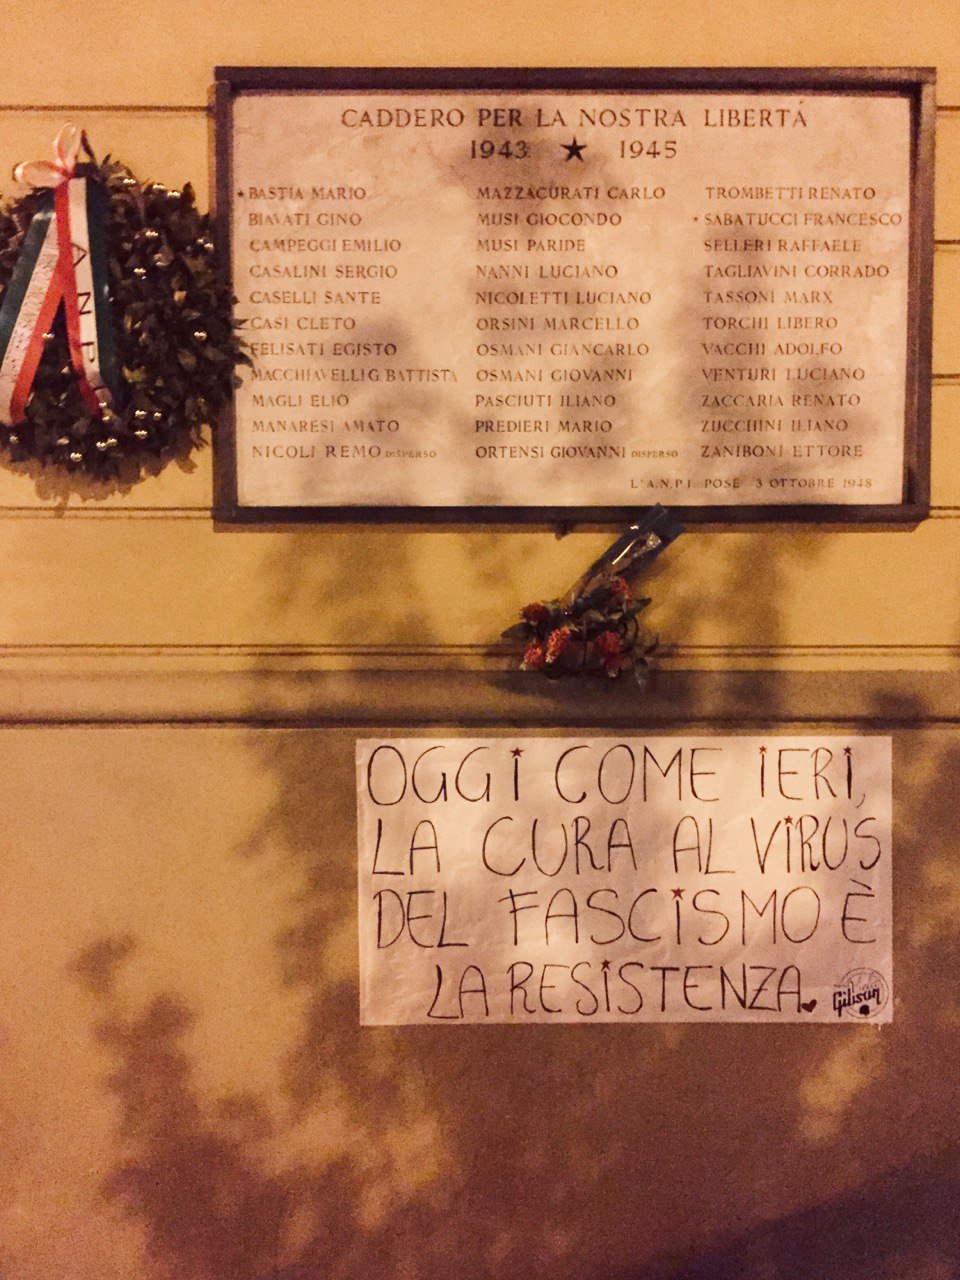 CADDERO PER LA NOSTRA LIBERTÁ
1943 ★ 1945
★ BASTIA MARIO
BIAVATI GINO
CAMPEGGI EMILIO
CASALINI SERGIO
CASELLI SANTE
CASI CLETO
FELISATI EGISTO
MACCHIAVELLI G. BATTISTA
MAGLI ELIO
MANARESI AMATO
NICOLI REMO DISPERSO
MAZZACURATI CARLO
MUSI GIOCONDO
MUSI PARIDE
NANNI LUCIANO
NICOLETTI LUCIANO
ORSINI MARCELLO
OSMANI GIANCARLO
OSMANI GIOVANNI
PASCIUTI ILIANO
PREDIERI MARIO
ORTENSI GIOVANNI DISPERSO
TROMBETTI RENATO
★ SABATUCCI FRANCESCO
SELLERI RAFFAELE
TAGLIAVINI CORRADO
TASSONI MARX
TORCHI LIBERO
VACCHI ADOLFO
VENTURI LUCIANO
ZACCARIA RENATO
ZUCCHINI ILIANO
ZANIBONI ETTORE
L'A.N.P.I. POSE 3 OTTOBRE 1948
ANPI
OGGI COME IERI,
LA CURA AL VIRUS
DEL FASCISMO È
LA RESISTENZA.
Gibson